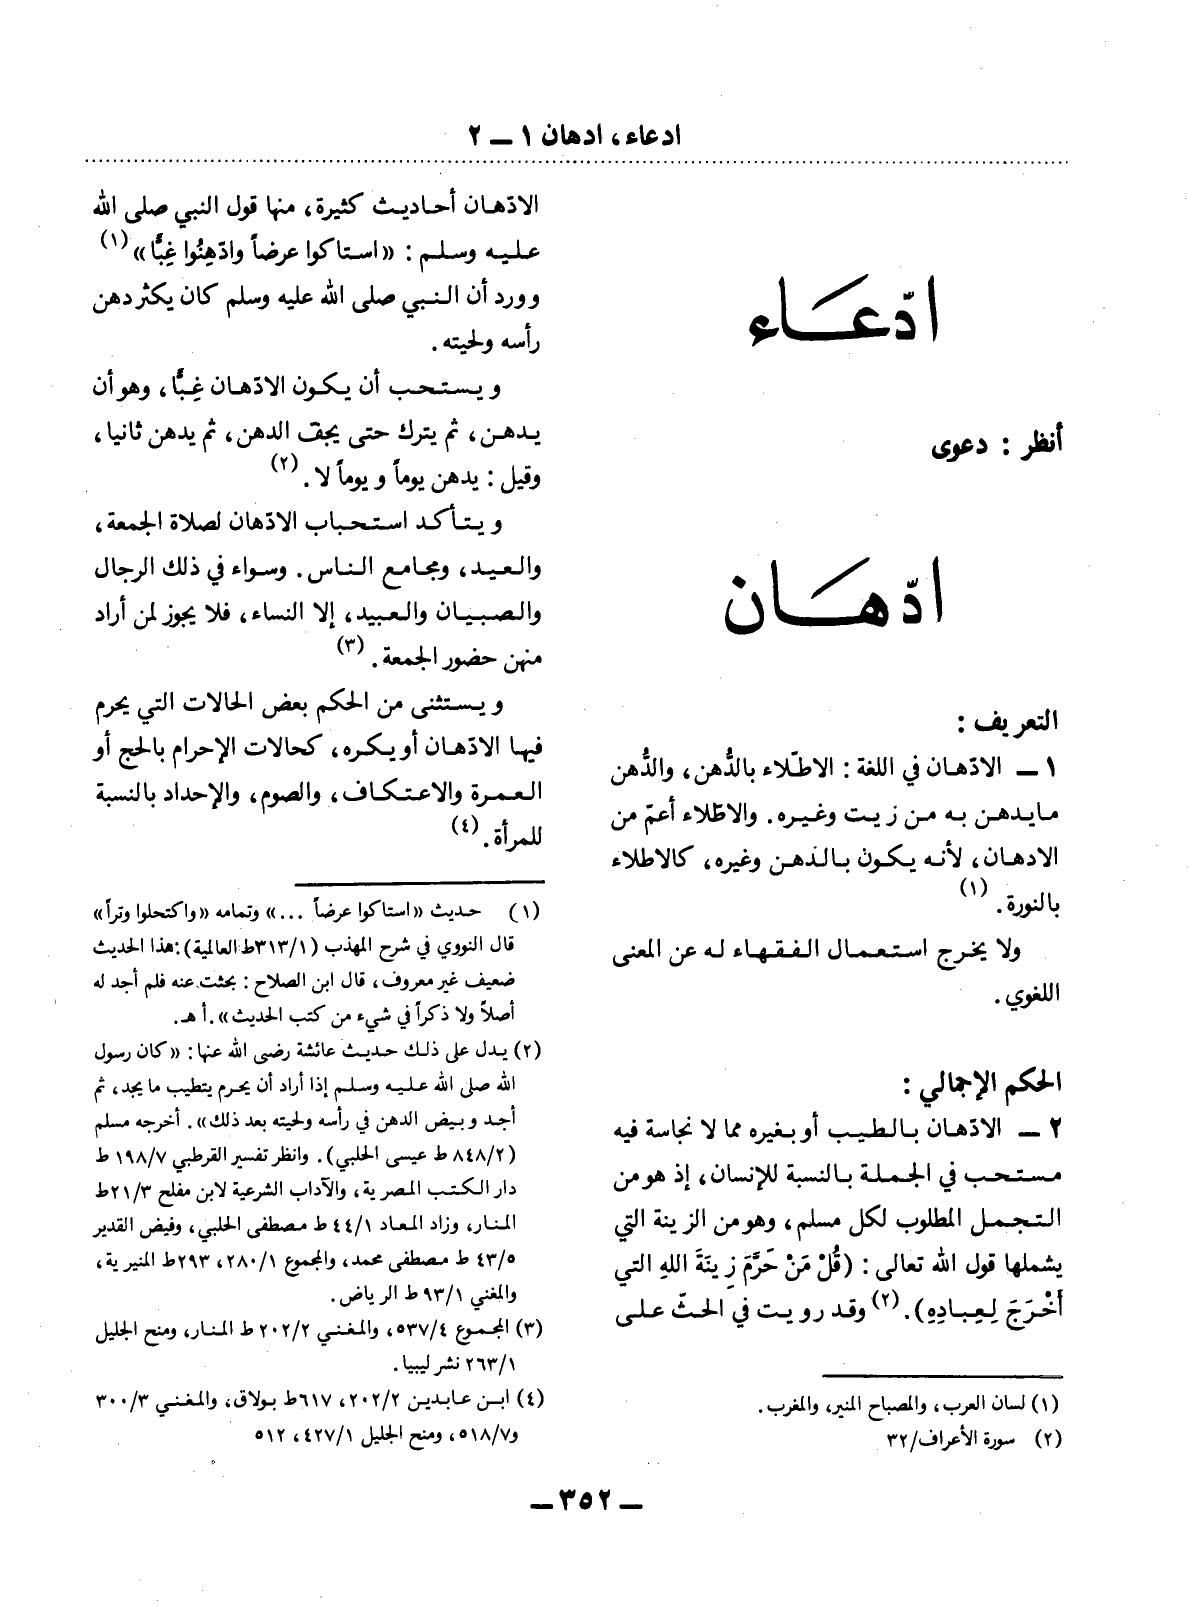 ادعاء، ادهان ١ ــ ٢
ادّعَــاء
أنظر : دعوى
ادّهَــان
التعريف :
١ ــ الادّهـان في اللغة : الاطّلاء بالدُّهن، والدُّهن
مـايـدهـن بـه مـن زيـت وغـيـره. والاطّلاء أعمّ من
الادهـان، لأنـه يـكـون بـالـدهـن وغيره، كالاطلاء
بالنورة. (١)
ولا يخـرج اسـتـعـمـال الـفـقـهـاء لـه عن المعنى
اللغوي.
الحكم الإجمالي :
٢ ــ الادّهـان بـالـطـيـب أو بـغيره مما لا نجاسة فيه
مـسـتـحـب في الجـمـلـة بـالنسبة للإنسان، إذ هو من
الـتـجـمـل المطلوب لكل مسلم، وهو من الزينة التي
يشملها قول الله تعالى : (قُلْ مَنْ حَرَّمَ زِينَةَ اللهِ التي
أَخْرَجَ لِـعِـبـادِهِ). (٢) وقـد رويـت في الحـثّ عـلـى
(١) لسان العرب، والمصباح المنير، والمغرب.
(٢) سورة الأعراف/٣٢
الادّهـان أحـاديـث كثيرة، منها قول النبي صلى الله
عـلـيـه وسـلـم : «اسـتـاكوا عرضاً وادّهِنُوا غِبًّا» (١)
وورد أن الـنـبـي صلى الله عليه وسلم كان يكثر دهن
رأسه ولحيته.
ويـسـتـحـب أن يـكـون الادّهـان غِـبًّا، وهو أن
يـدهـن، ثم يترك حتى يجف الدهن، ثم يدهن ثانيا،
وقيل : يدهن يوماً ويوماً لا. (٢)
ويـتـأكـد اسـتـحـباب الادّهان لصلاة الجمعة،
والـعـيـد، ومجـامـع الـنـاس. وسـواء في ذلك الرجال
والـصـبـيـان والـعـبيد، إلا النساء، فلا يجوز لمن أراد
منهن حضور الجمعة. (٣)
ويـسـتـثنى من الحكم بعض الحالات التي يحرم
فيها الادّهـان أو يـكـره، كحالات الإحرام بالحج أو
الـعـمـرة والاعـتـكـاف، والصوم، والإحداد بالنسبة
للمرأة. (٤)
(١) حـديـث «استاكوا عرضاً ...» وتمامه «واكتحلوا وتراً»
قال النووي في شرح المهذب (١/ ٣١٣ط العالمية): هذا الحديث
ضعيف غير معروف، قال ابن الصلاح : بحثت عنه فلم أجد له
أصلاً ولا ذكراً في شيء من كتب الحديث». أ هـ.
(٢) يـدل على ذلـك حـديـث عائشة رضى الله عنها : «كان رسول
الله صلى الله عـلـيـه وسـلـم إذا أراد أن يحـرم يتطيب ما يجد، ثم
أجـد وبـيض الدهن في رأسه ولحيته بعد ذلك». أخرجه مسلم
(٢/ ٨٤٨ ط عيسى الحلبي). وانظر تفسير القرطبي ٧/ ١٩٨ ط
دار الـكـتـب المـصـرية، والآداب الشرعية لابن مفلح ٣/ ٢١ط
المـنـار، وزاد المـعـاد ١/ ٤٤ ط مـصـطفى الحلبي، وفيض القدير
٥/ ٤٣ ط مـصـطفى محمد، والمجموع ١/ ٢٨٠، ٢٩٣ط المنيرية،
والمغني ١/ ٩٣ ط الرياض.
(٣) المجـمـوع ٤/ ٥٣٧، والمـغـنـي ٢/ ٢٠٢ ط المنار، ومنح الجليل
١/ ٢٦٣ نشر ليبيا.
(٤) ابـن عـابـديـن ٢/ ٢٠٢، ٦١٧ط بـولاق، والمـغـنـي ٣/ ٣٠٠
و٧/ ٥١٨، ومنح الجليل ١/ ٤٢٧، ٥١٢
ــ ٣٥٢ ــ